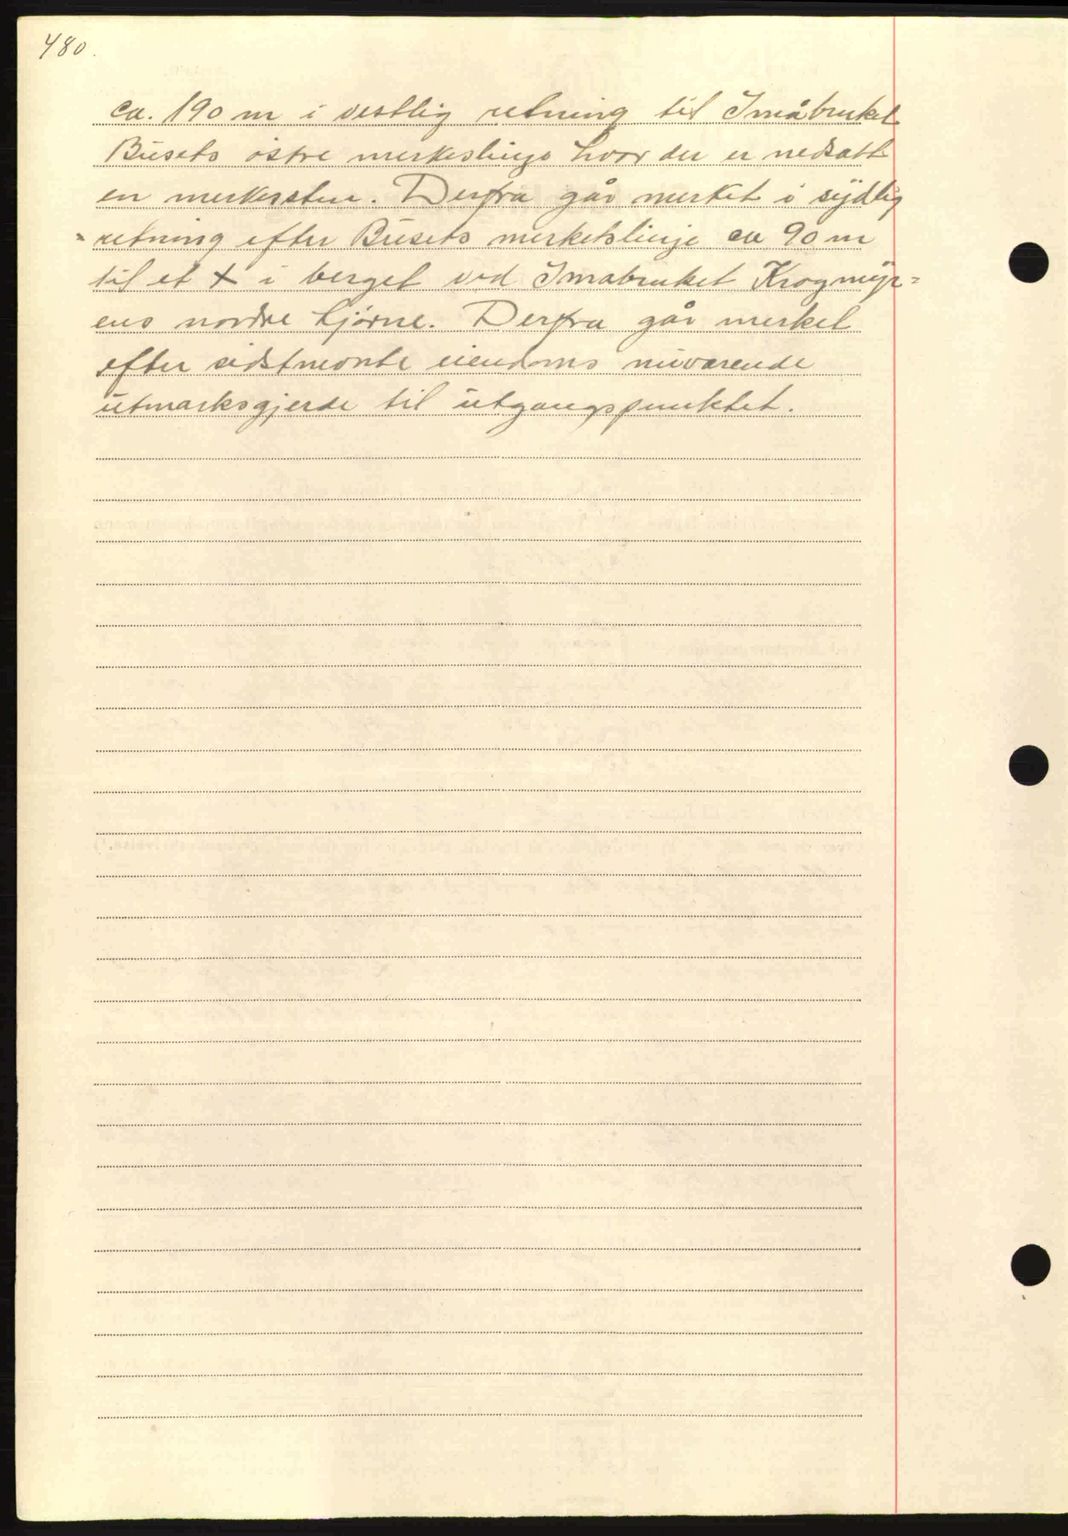 480.
ca. 190 m i vestlig retning til Småbruket
Busets østre merkeslinje hvor der er nedsatt
en merkessten. Derfra går merket i sydlig
retning efter Busets merkelslinje ca 90 m
til et X i berget ved Smabruket Krogmyr=
ens nordre hjørne. Derfra går merket
efter sidstnevnte eiendoms nuværende
utmarksgjerde til utgangspunktet.